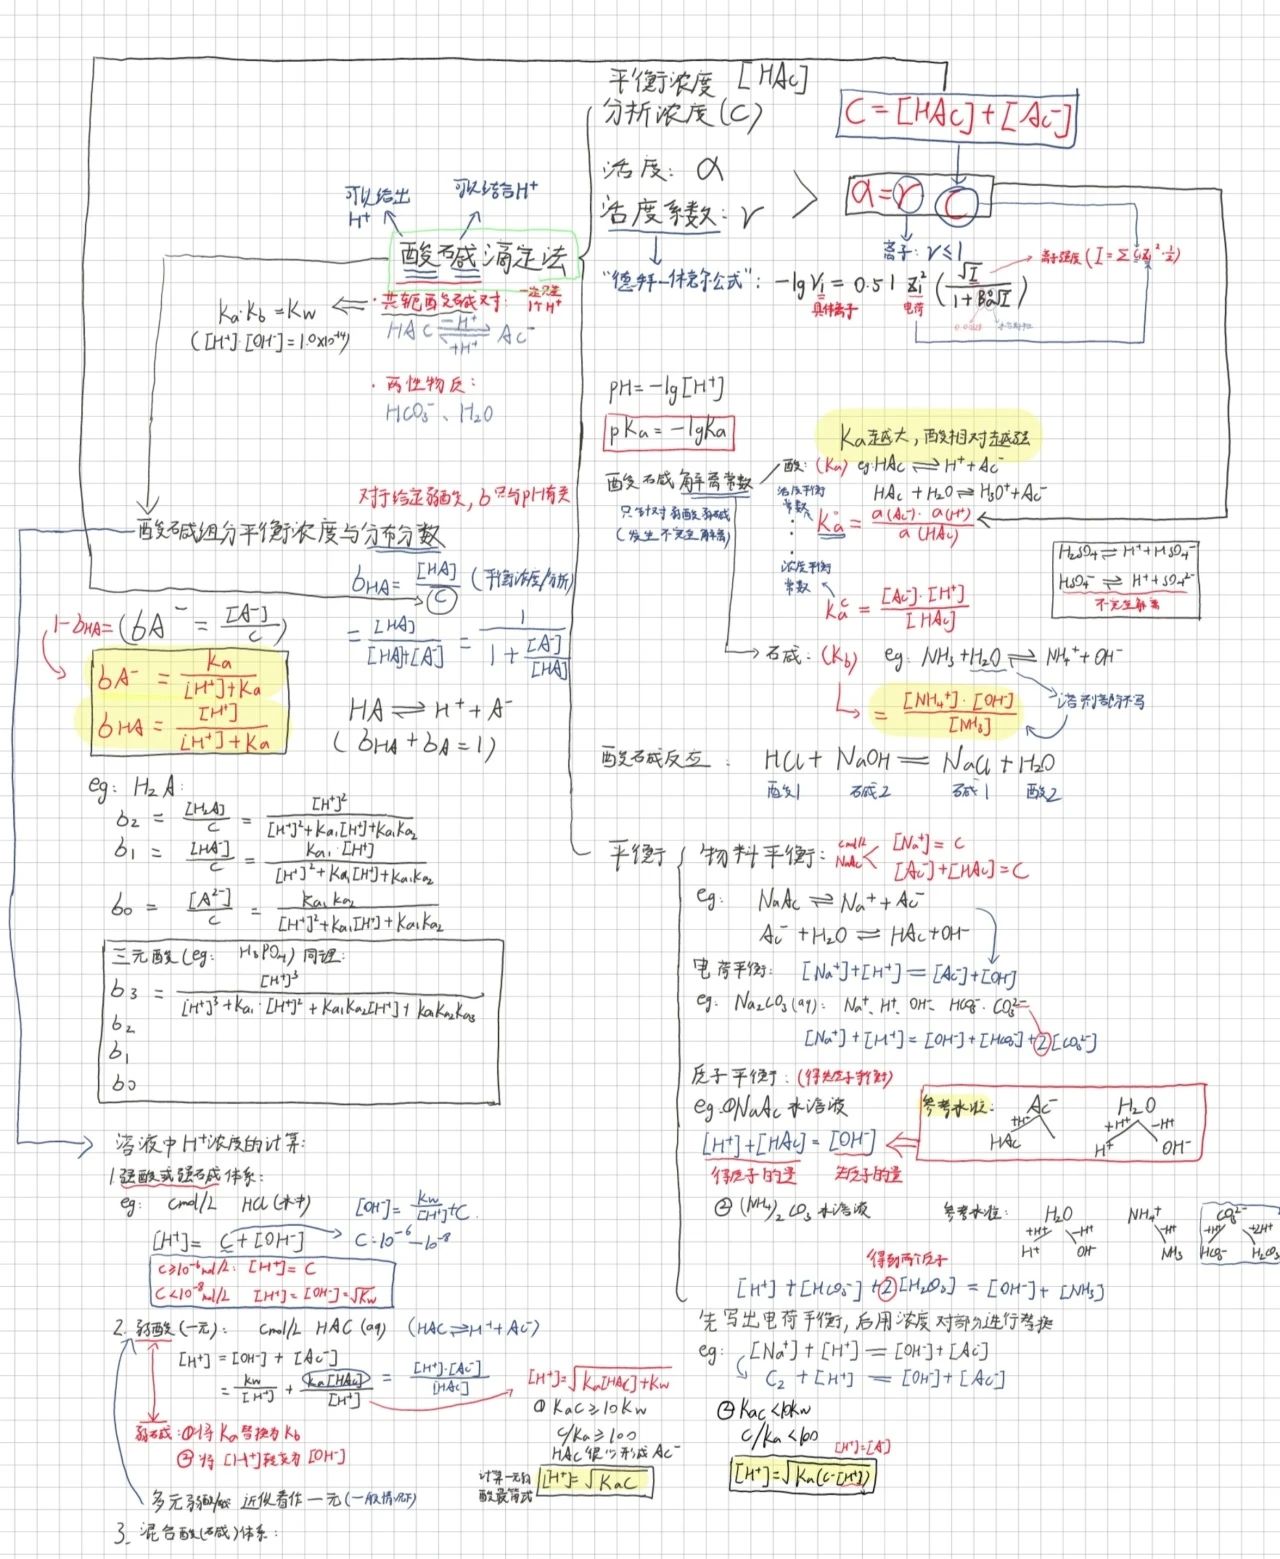 平衡浓度 [HAc]
分析浓度(C)
C=[HAc]+[Ac⁻]
活度: α
活度系数: γ
α=γ C
离子: γ≤1
离子强度 (I=Σ CᵢZᵢ²·½)
"德拜-休克尔公式": -lgγᵢ = 0.51 Zᵢ² (√I / 1+Bå√I)
具体离子 电荷
可以给出 H⁺
可以结合H⁺
酸碱滴定法
·共轭酸碱对: 一定只差1个H⁺
HAc ⇌ Ac⁻
-H⁺
+H⁺
Ka·Kb=Kw
([H⁺]·[OH⁻]=1.0×10⁻¹⁴)
·两性物质:
HCO₃⁻、H₂O
pH=-lg[H⁺]
pKa=-lgKa
Ka越大,酸相对越强
酸碱解离常数
只针对弱酸弱碱
(发生不完全解离)
酸: (Ka) eg:HAc ⇌ H⁺+Ac⁻
HAc+H₂O ⇌ H₃O⁺+Ac⁻
活度平衡常数
Ka° = a(Ac⁻)·a(H⁺) / a(HAc)
浓度平衡常数
Kaᶜ = [Ac⁻]·[H⁺] / [HAc]
H₂SO₄ ⇌ H⁺+HSO₄⁻
HSO₄⁻ ⇌ H⁺+SO₄²⁻
不完全解离
碱: (Kb) eg: NH₃+H₂O ⇌ NH₄⁺+OH⁻
= [NH₄⁺]·[OH⁻] / [NH₃]
溶剂部分不写
酸碱反应: HCl+NaOH=NaCl+H₂O
酸1 碱2 碱1 酸2
对于给定弱酸,δ只与pH有关
酸碱组分平衡浓度与分布分数
δHA = [HA] / C (平衡浓度/分析)
= [HA] / [HA]+[A⁻] = 1 / 1+[A⁻]/[HA]
1-δHA= (δA⁻ = [A⁻] / C)
δA⁻ = Ka / [H⁺]+Ka
δHA = [H⁺] / [H⁺]+Ka
HA ⇌ H⁺+A⁻
(δHA+δA=1)
eg: H₂A:
δ₂ = [H₂A] / C = [H⁺]² / [H⁺]²+Ka₁[H⁺]+Ka₁Ka₂
δ₁ = [HA⁻] / C = Ka₁·[H⁺] / [H⁺]²+Ka₁[H⁺]+Ka₁Ka₂
δ₀ = [A²⁻] / C = Ka₁Ka₂ / [H⁺]²+Ka₁[H⁺]+Ka₁Ka₂
三元酸(eg: H₃PO₄)同理:
δ₃ = [H⁺]³ / [H⁺]³+Ka₁·[H⁺]²+Ka₁Ka₂[H⁺]+Ka₁Ka₂Ka₃
δ₂
δ₁
δ₀
平衡
物料平衡: cmol/L NaAc < [Na⁺]=C
[Ac⁻]+[HAc]=C
eg: NaAc ⇌ Na⁺+Ac⁻
Ac⁻+H₂O ⇌ HAc+OH⁻
电荷平衡: [Na⁺]+[H⁺]=[Ac⁻]+[OH⁻]
eg: Na₂CO₃(aq): Na⁺、H⁺、OH⁻、HCO₃⁻、CO₃²⁻
[Na⁺]+[H⁺]=[OH⁻]+[HCO₃⁻]+2[CO₃²⁻]
质子平衡: (得失质子守衡)
eg.①NaAc水溶液
[H⁺]+[HAc]=[OH⁻]
得质子的量 失质子的量
参考水准: Ac⁻ H₂O
+H⁺ +H⁺ -H⁺
HAc H⁺ OH⁻
②(NH₄)₂CO₃水溶液
参考水准: H₂O NH₄⁺ CO₃²⁻
+H⁺ -H⁺ -H⁺ +H⁺ +2H⁺
H⁺ OH⁻ NH₃ HCO₃⁻ H₂CO₃
得到两个质子
[H⁺]+[HCO₃⁻]+2[H₂CO₃]=[OH⁻]+[NH₃]
先写出电荷平衡,后用浓度对部分进行替换
eg: [Na⁺]+[H⁺]=[OH⁻]+[Ac⁻]
C₂+[H⁺]=[OH⁻]+[Ac⁻]
溶液中H⁺浓度的计算:
1.强酸或强碱体系:
eg: cmol/L HCl(水中)
[OH⁻]=Kw / [H⁺]+C
[H⁺]=C+[OH⁻]
C:10⁻⁶—10⁻⁸
C≥10⁻⁶mol/L: [H⁺]=C
C<10⁻⁸mol/L [H⁺]=[OH⁻]=√Kw
2.弱酸(一元): cmol/L HAC(aq) (HAC ⇌ H⁺+AC⁻)
[H⁺]=[OH⁻]+[Ac⁻]
= Kw / [H⁺] + Ka[HAc] / [H⁺] = [H⁺]·[AC⁻] / [HAC]
[H⁺]=√Ka[HAc]+Kw
①KaC≥10Kw
C/Ka≥100
HAC很少形成AC⁻
计算一元弱酸最简式
[H⁺]=√KaC
②KaC<10Kw
C/Ka<100
[H⁺]=[A⁻]
[H⁺]=√Ka(C-[H⁺])
弱碱:①将Ka替换为Kb
②将[H⁺]转变为[OH⁻]
多元弱酸/碱 近似看作一元(一般情况下)
3.混合酸(碱)体系: